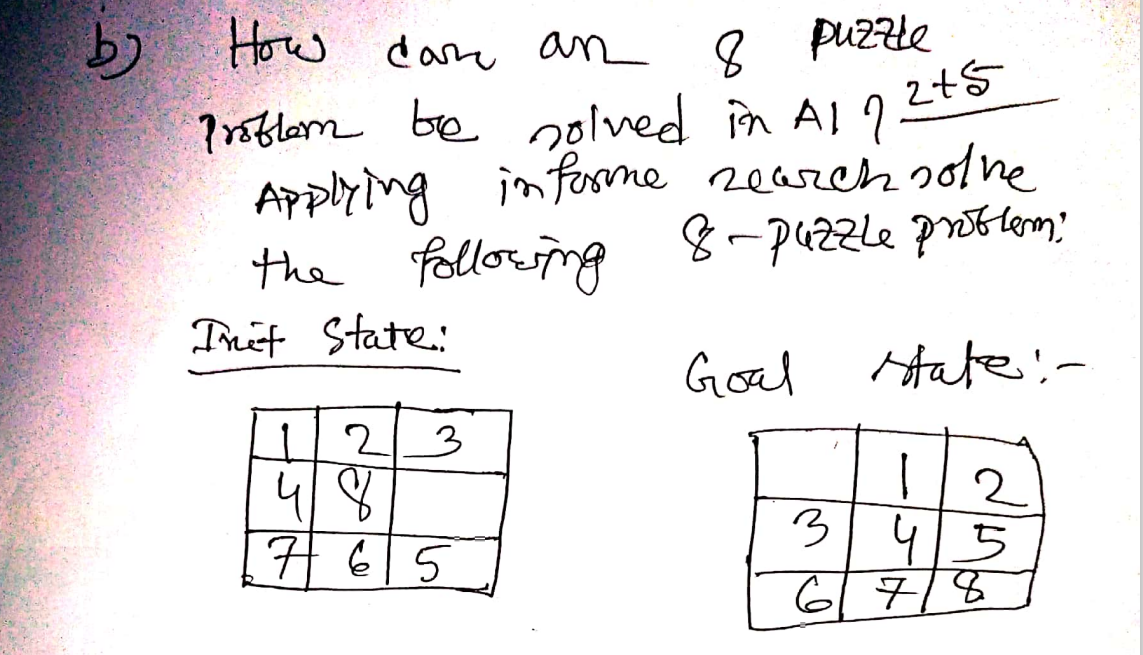 b) How can an 8 puzzle
Problem be solved in AI ? 2+5
Applying informe search solve
the following 8-puzzle problem:
Init State:
Goal state:-
1 2 3
4 8
7 6 5
1 2
3 4 5
6 7 8